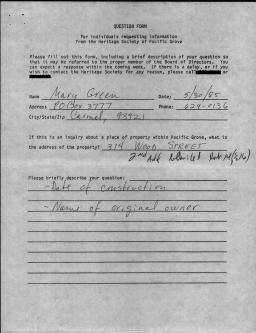 QUESTION FORM
For individuals requesting information
from the Heritage Society of Pacific Grove
Please fill out this form, including a brief description of your question so
that it may be referred to the proper member of the Board of Directors. You
can expect a response within the coming week. If there is a delay, or if you
wish to contact the Heritage Society for any reason, please call or
Name Mary Green Date: 5/30/85
Address PO Box 3777 Phone: 624-0136
City/State/Zip Carmel, 93921
If this is an inquiry about a place of property within Pacific Grove, what is
the address of the property? 314 Wood Street
2nd Add
Please briefly describe your question:
- Date of construction
- Name of original owner